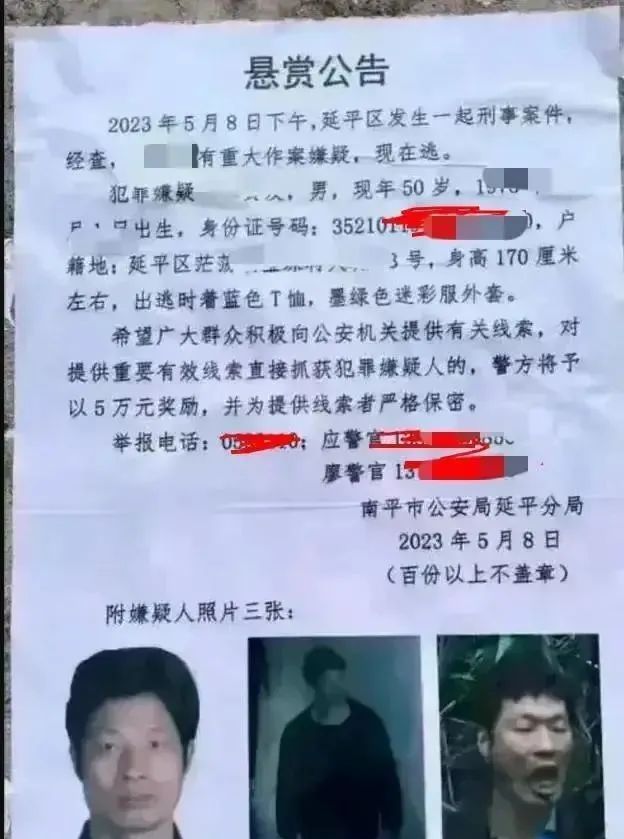 悬赏公告
2023年5月8日下午,延平区发生一起刑事案件,
经查, 有重大作案嫌疑,现在逃。
犯罪嫌疑 ,男,现年50岁,
出生,身份证号码:3521011 ,户
籍地:延平区茫 号,身高170厘米
左右,出逃时着蓝色T恤,墨绿色迷彩服外套。
希望广大群众积极向公安机关提供有关线索,对
提供重要有效线索直接抓获犯罪嫌疑人的,警方将予
以5万元奖励,并为提供线索者严格保密。
举报电话: ;应警官
廖警官
南平市公安局延平分局
2023年5月8日
(百份以上不盖章)
附嫌疑人照片三张: